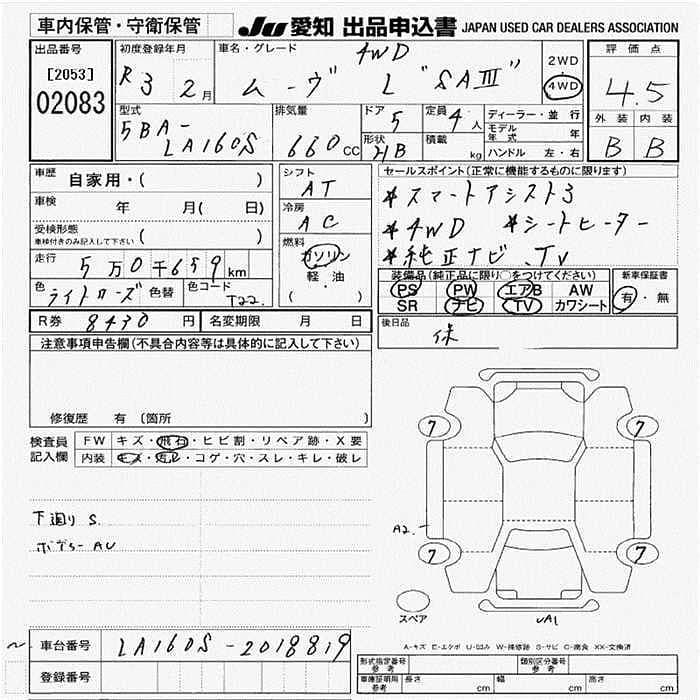 車内保管・守衛保管
JU 愛知 出品申込書 JAPAN USED CAR DEALERS ASSOCIATION
出品番号
[2053]
02083
初度登録年月
R3 2月
車名・グレード
4WD
ムーヴ L "SAⅢ"
2WD
4WD
評価点
4.5
外装 内装
B B
型式
5BA-
LA160S
排気量
660cc
ドア 5
定員 4人
形状 HB
積載 kg
ディーラー・並行
モデル年式 年
ハンドル 左・右
車歴 自家用・( )
車検 年 月( 日)
受検形態
車検付きのみ記入して下さい ( )
走行 5万0千659km
色 ライトローズ 色替 色コード T22.
シフト
AT
冷房
AC
燃料
ガソリン
軽・油
( )
セールスポイント(正常に機能するものに限ります)
*スマートアシスト3
*4WD *シートヒーター
*純正ナビ.TV
装備品(純正品に限り○をつけてください)
PS PW エアB AW
SR ナビ TV カワシート
新車保証書
有・無
R券 8430円 名変期限 月 日
後日品
保
注意事項申告欄(不具合内容等は具体的に記入して下さい)
修復歴 有 (箇所
検査員
記入欄
FW キズ・飛石・ヒビ割・リペア跡・X要
内装 キズ・汚レ・コゲ・穴・スレ・キレ・破レ
下廻り S.
ボデー AU
7 7
A2.
7 7
スペア
UA1
A-キズ E-エクボ U-凹み W-補修跡 S-サビ C-腐食 XX-交換済
車台番号 LA160S-2018819
登録番号
形式指定番号 参考
類別区分番号 参考
車庫証明用 参考 長さ cm 幅 cm 高さ cm